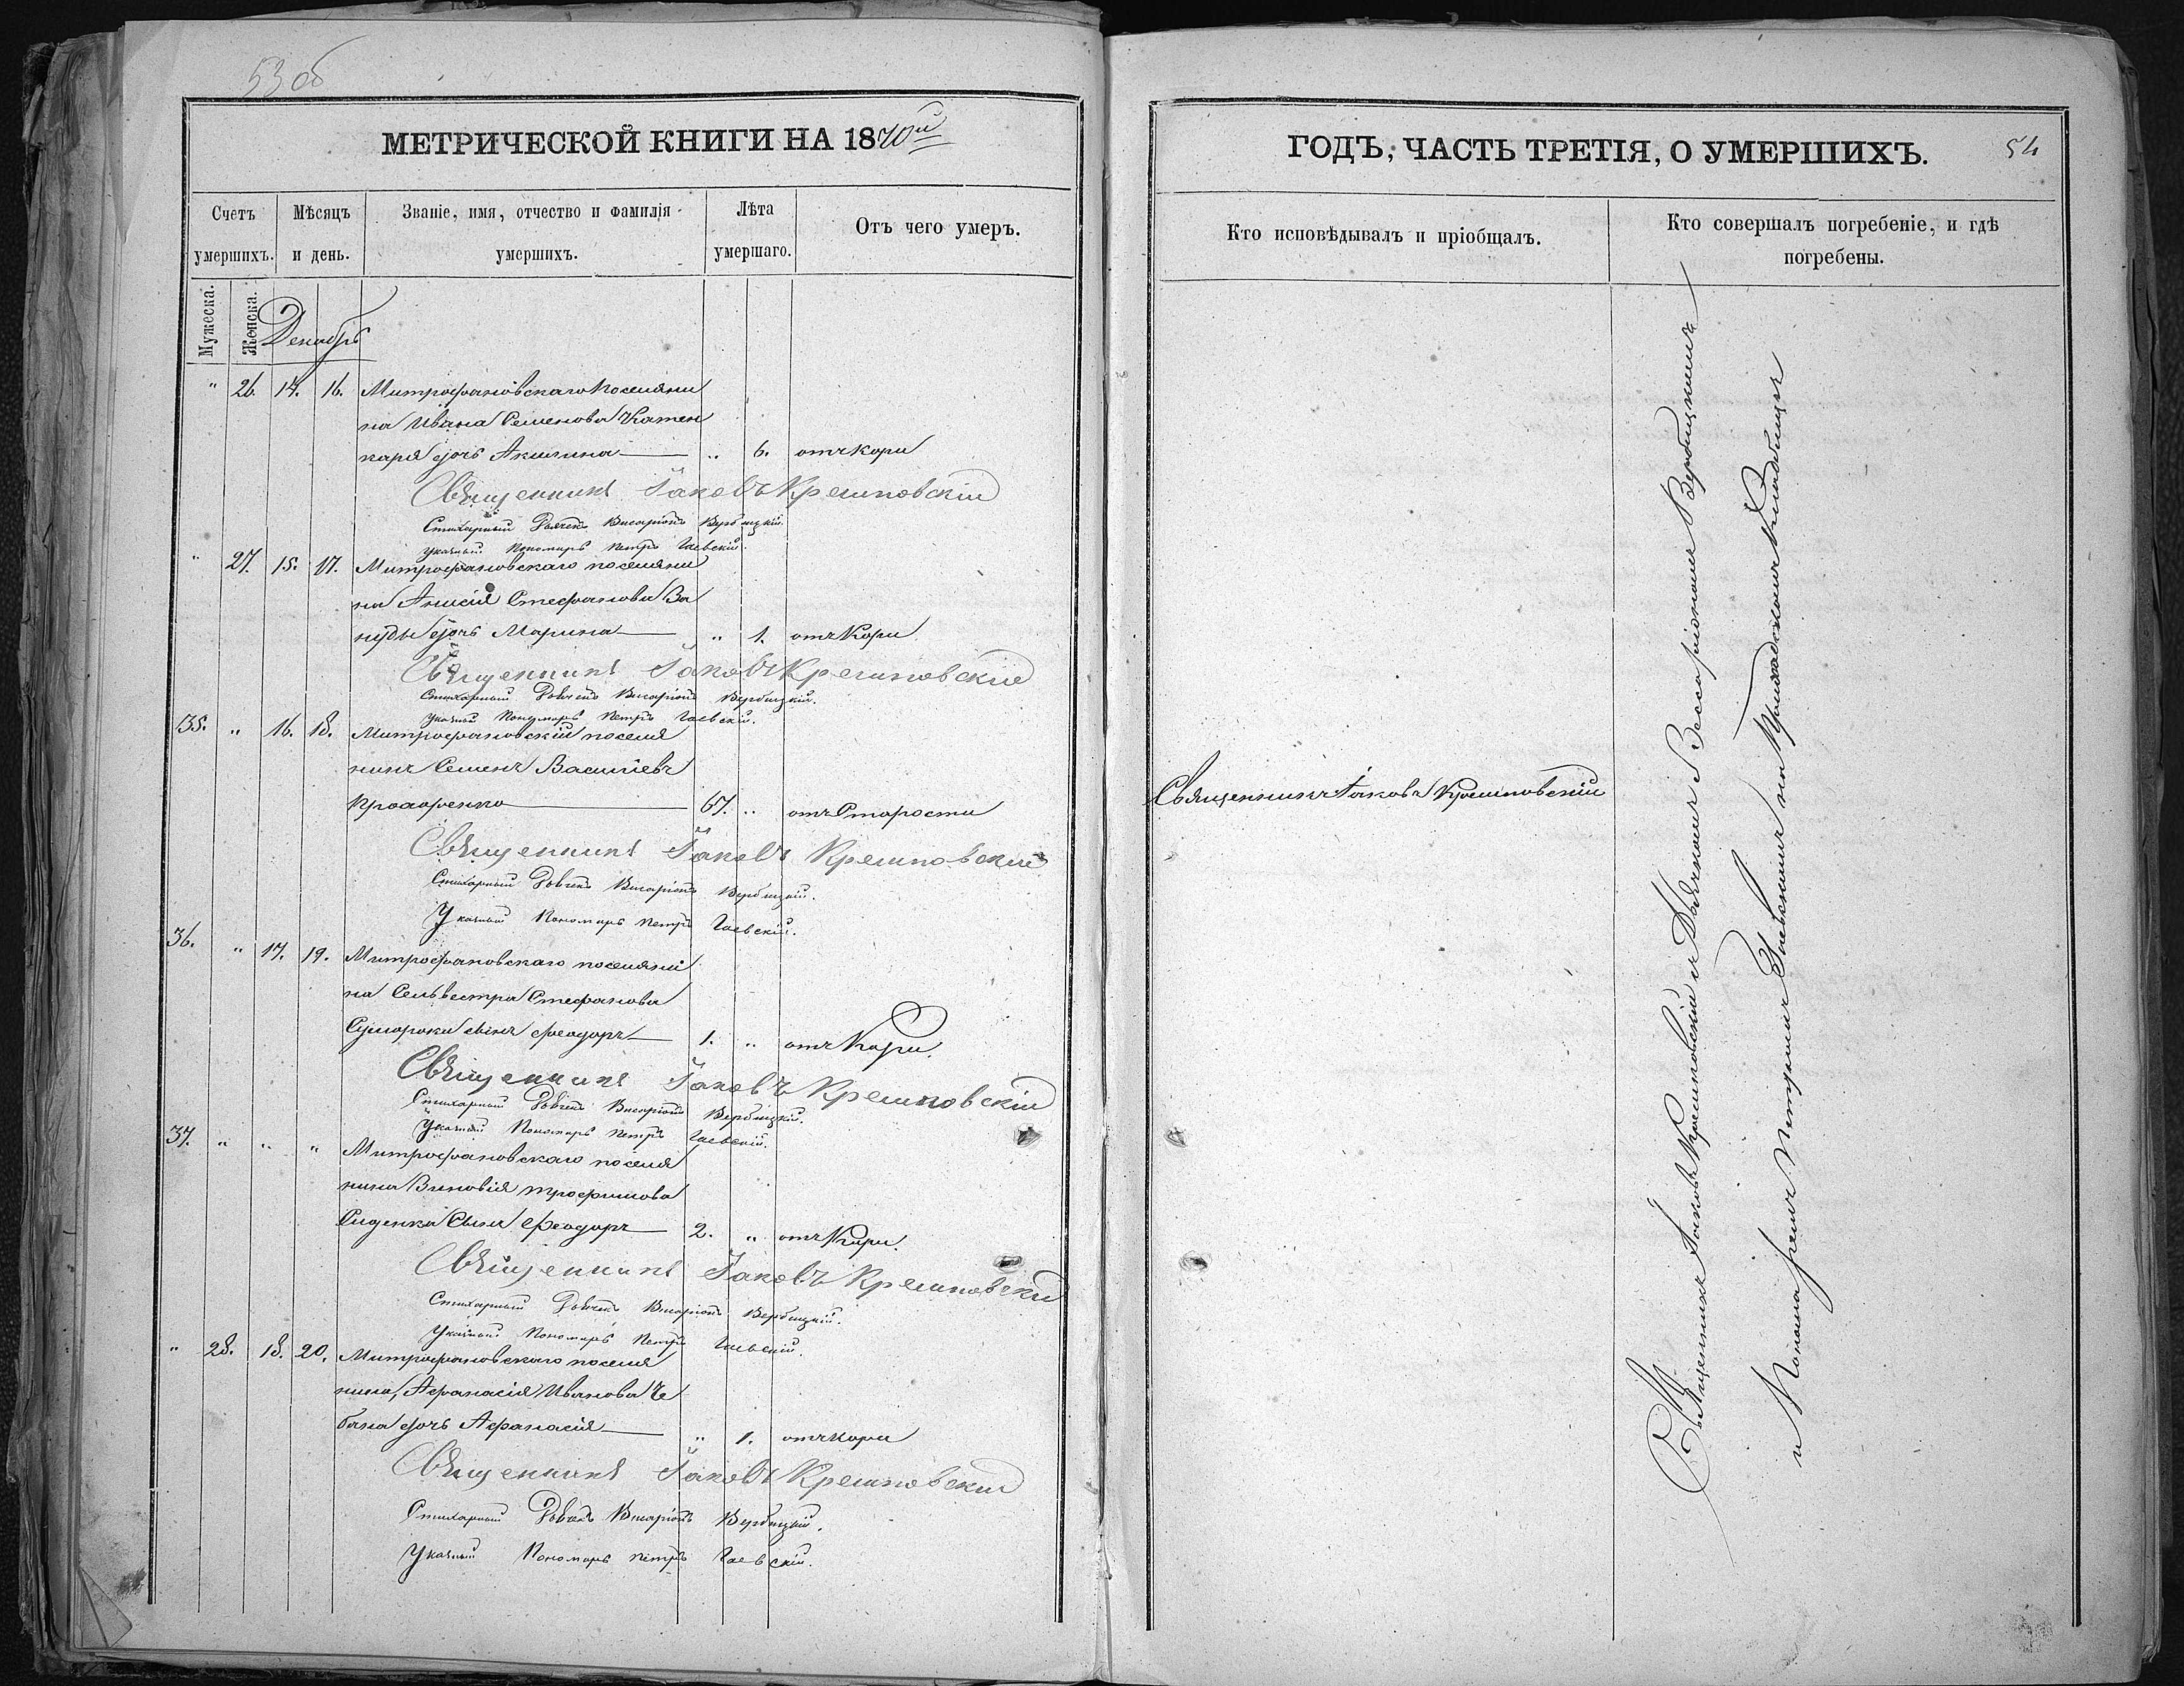 53 об
МЕТРИЧЕСКОЙ КНИГИ НА 1870й
Счетъ умершихъ.
Мѣсяцъ и день.
Званіе, имя, отчество и фамилія умершихъ.
Лѣта умершаго.
Отъ чего умеръ.
Мужеска.
Женска.
Декабрь
" 26. 14. 16. Митрофановскаго поселяни
на Ивана Семенова Камен
каря дочь Акилина — " 6. отъ кори
Священникъ Іаковъ Крышновскій
Стихарный Дьячекъ Висаріонъ Вербицкій.
Указный Пономарь Петръ Гаевскій.
" 27. 15. 17. Митрофановскаго поселяни
на Анисія Стефанова За
нуды дочь Марина — " 1. отъ Кори
Священникъ Іаковъ Крышновскій
Стихарный Дьячекъ Висаріонъ Вербицкій.
Указный Пономарь Петръ Гаевскій.
35. " 16. 18. Митрофановскій поселя
нинъ Семенъ Васильевъ
Прохоренко — 67. " отъ Старости
Священникъ Іаковъ Крышновскій
Стихарный Дьячекъ Висаріонъ Вербицкій.
Указный Пономарь Петръ Гаевскій.
36. " 17. 19. Митрофановскаго поселяни
на Сельвестра Стефанова
Сумароки сынъ Феодоръ — 1. " отъ Кори.
Священникъ Іаковъ Крышновскій
Стихарный Дьячекъ Висаріонъ Вербицкій.
Указный Пономарь Петръ Гаевскій.
37. " " " Митрофановскаго поселя
нина Зиновія Трофимова
Сынъ Феодоръ — 2. " отъ Кори.
Священникъ Іаковъ Крышновскій
Стихарный Дьячекъ Висаріонъ Вербицкій.
Указный Пономарь Петръ Гаевскій.
" 28. 18. 20. Митрофановскаго поселя
нина, Афанасія Иванова Че
бана дочь Афанасія — " 1. отъ кори
Священникъ Іаковъ Крышновскій
Стихарный Дьячекъ Висаріонъ Вербицкій.
Указный Пономарь Петръ Гаевскій.
ГОДЪ, ЧАСТЬ ТРЕТІЯ, О УМЕРШИХЪ.
54
Кто исповѣдывалъ и пріобщалъ.
Кто совершалъ погребеніе, и гдѣ
погребены.
Священникъ Іаковъ Крышновскій
Священникъ Іаковъ Крышновскій и Дьячкомъ Виссаріономъ Вербицкимъ
и Пономаремъ Петромъ Гаевскимъ на Приходскомъ Кладбищѣ